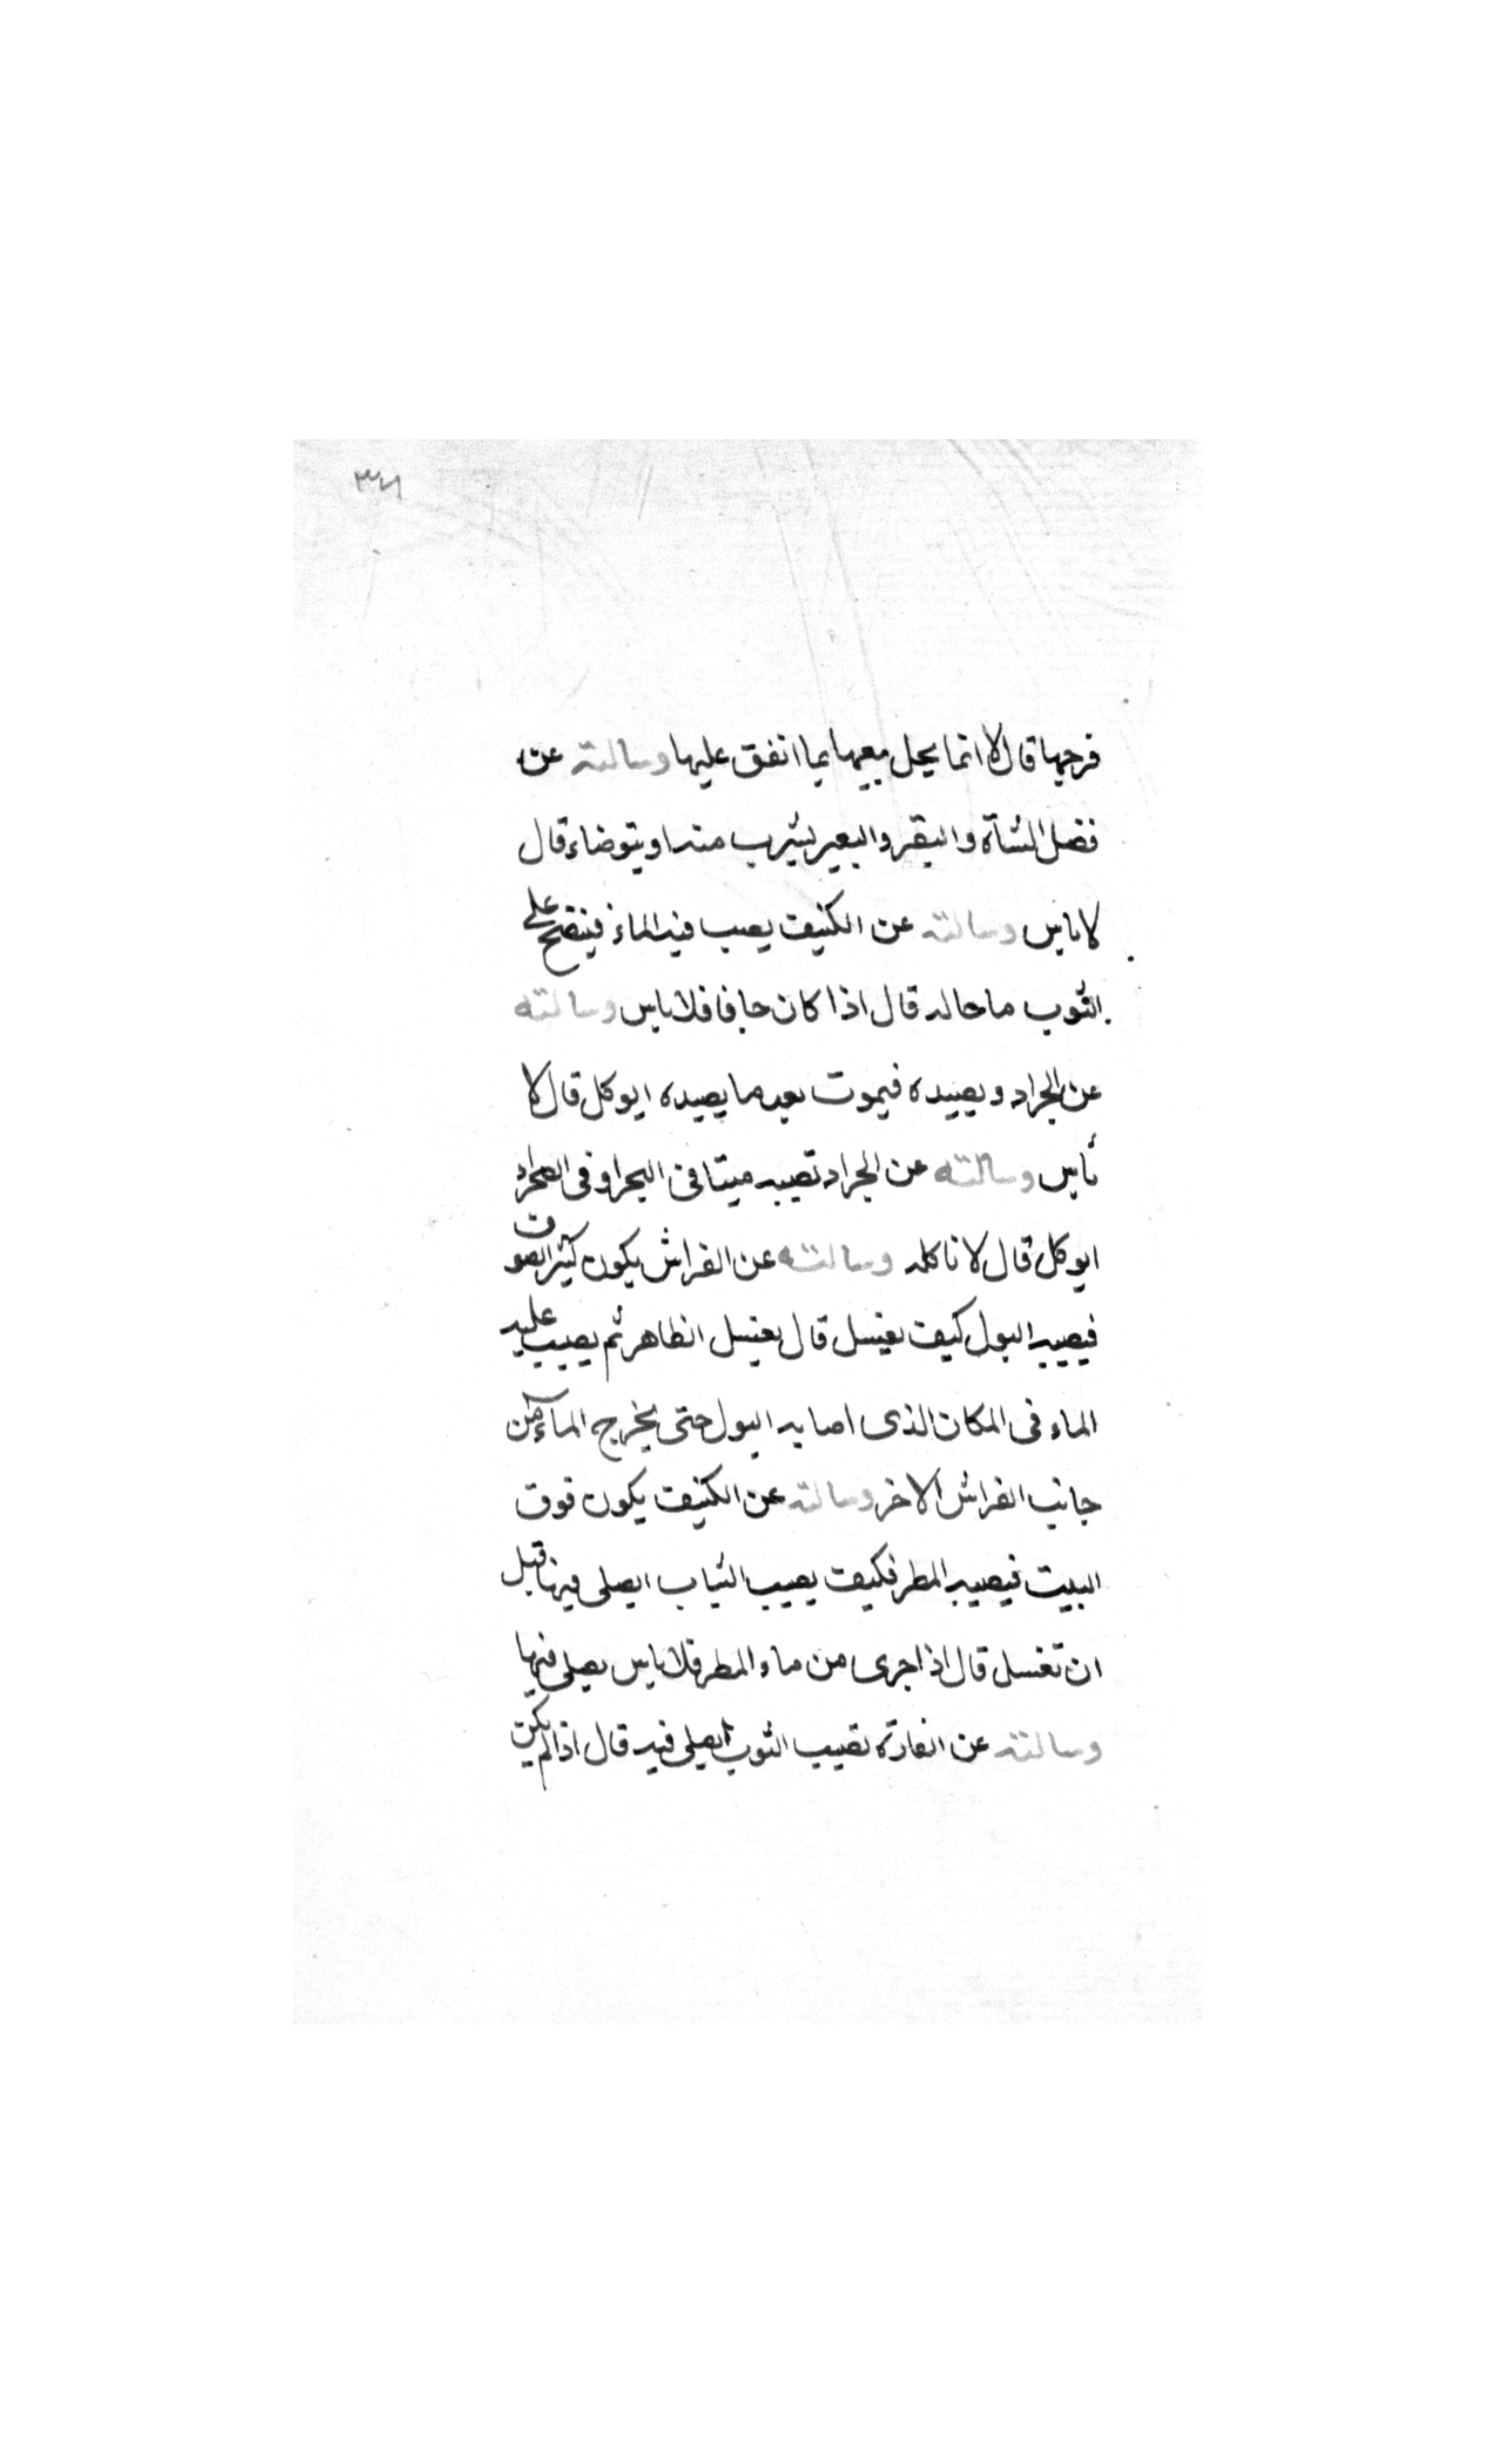 فرجها قال لا انما يحل بيعها بما انفق عليها وسالته عن
فضل الشاة والبقر والبعير يشرب منه او يتوضاء قال
لا باس وسالته عن الكنيف يصب فيه الماء فينتضح على
الثوب ما حاله قال اذا كان جافا فلا باس وسالته
عن الجراد ويصيده فيموت بعد ما يصيده ايوكل قال لا
باس وسالته عن الجراد تصيبه ميتا فى البحر او فى الصحراء
ايوكل قال لا تاكله وسالته عن الفراش يكون كثير الصوف
فيصيبه البول كيف يغسل قال يغسل الظاهر ثم يصيب عليه
الماء فى المكان الذى اصابه البول حتى يخرج الماء من
جانب الفراش الاخر وسالته عن الكنيف يكون فوق
البيت فيصيبه المطر فكيف يصيب الثياب ايصلى فيها قبل
ان تغسل قال اذا جرى من ماء المطر فلا باس يصلى فيها
وسالته عن الفارة تصيب الثوب ايصلى فيه قال اذا لم يكن